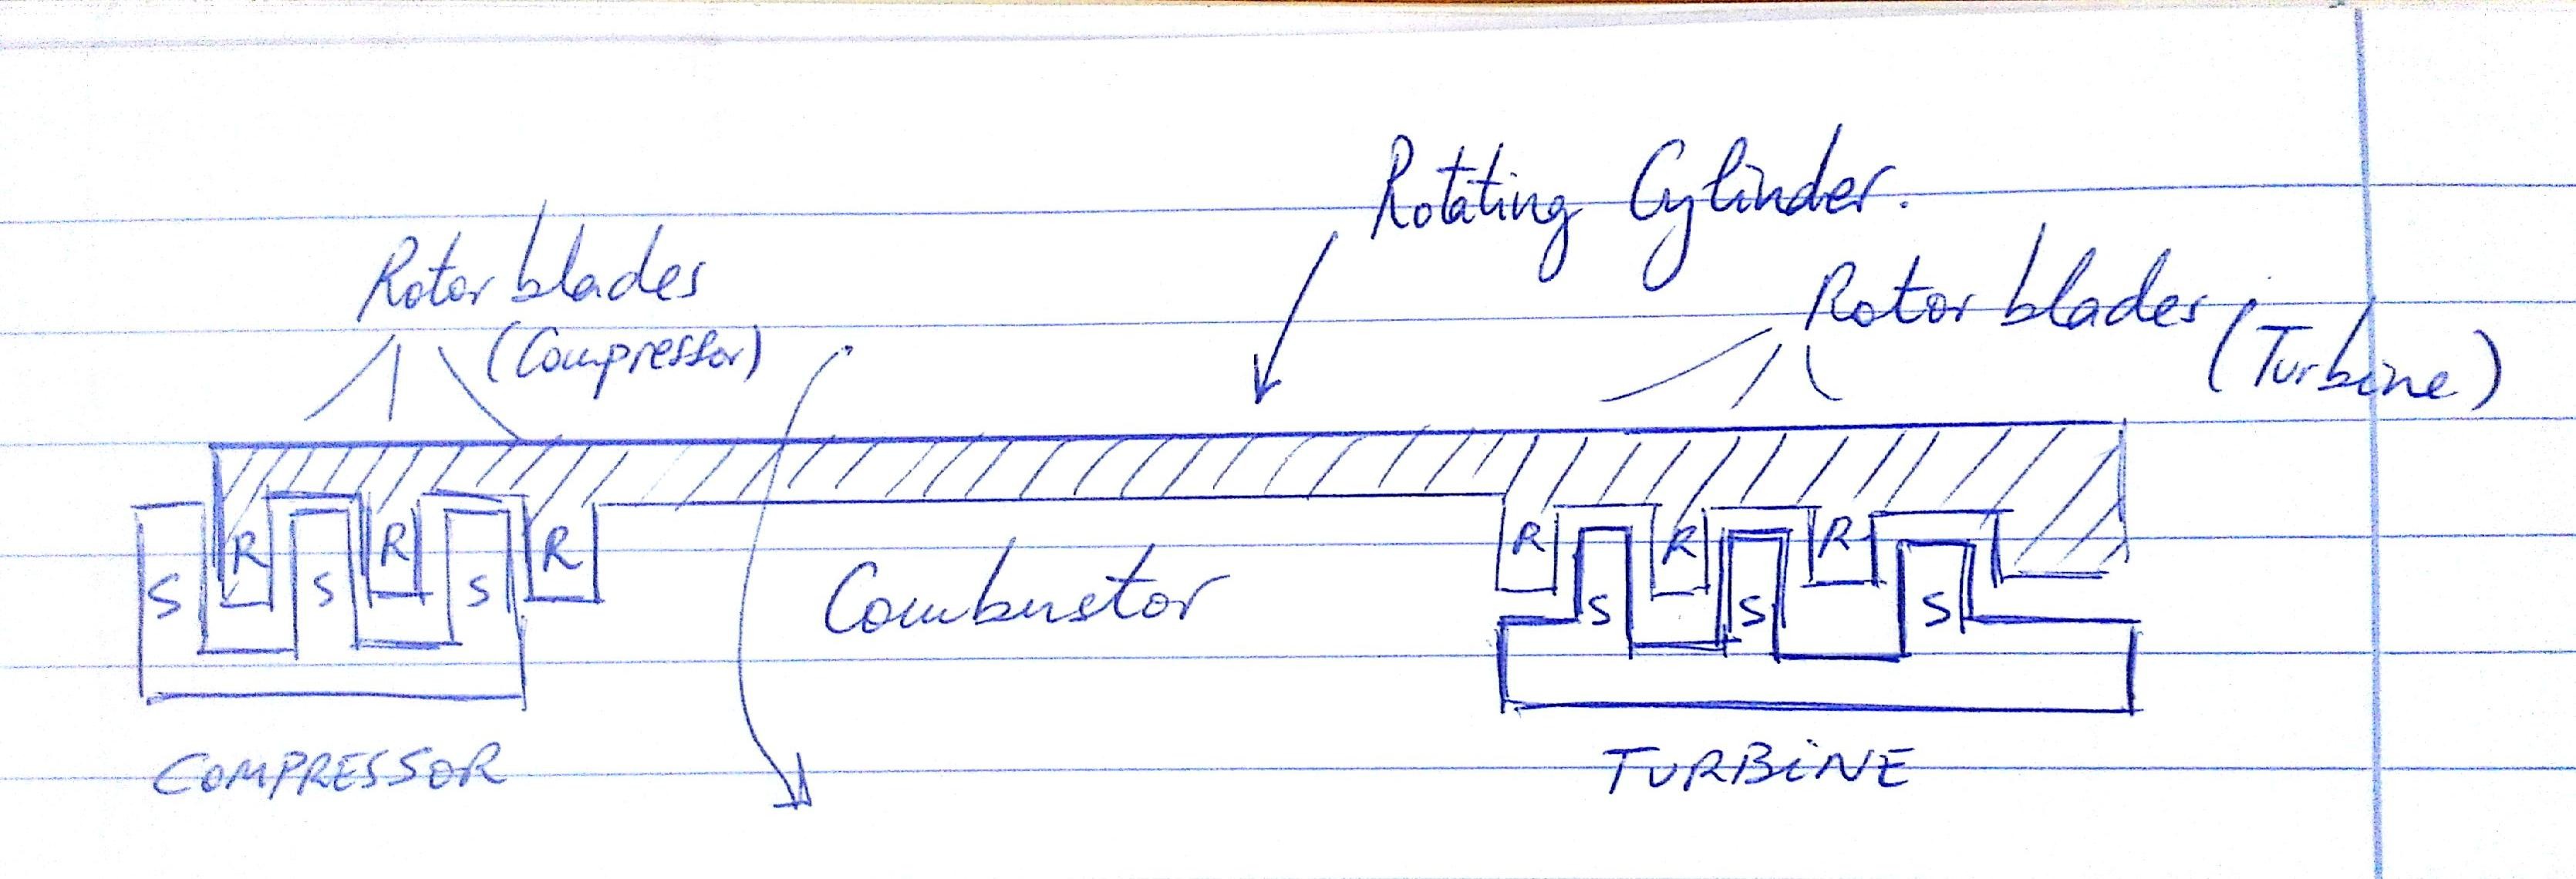 Rotating Cylinder.
Rotor blades
(Compressor)
Rotor blades
(Turbine)
R R R
S S S
R R R
S S S
Combustor
COMPRESSOR
TURBiNE